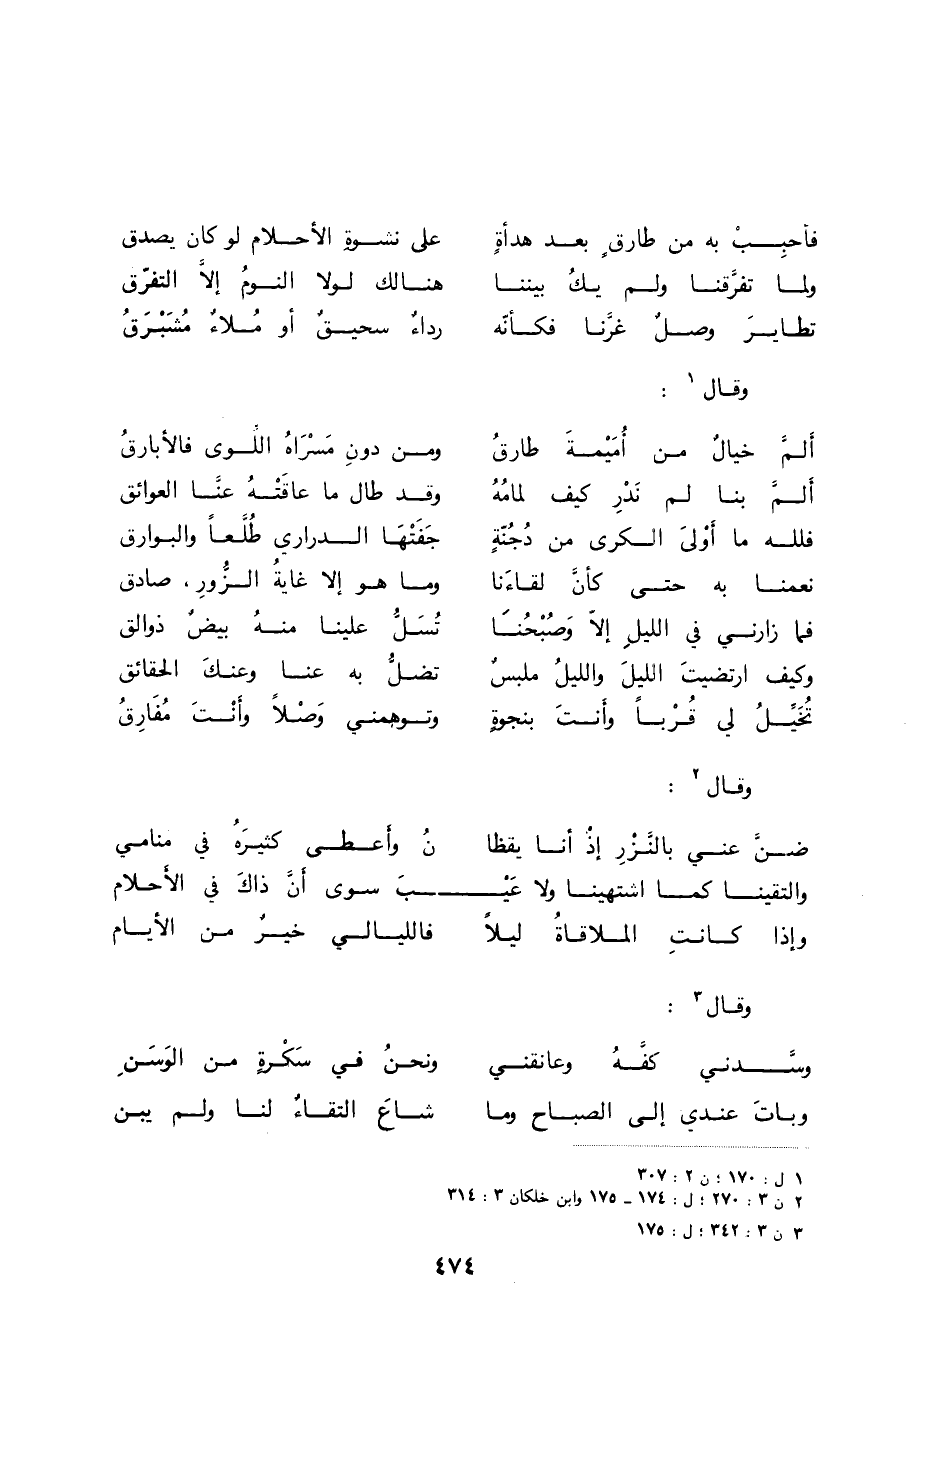 فأحبِـبْ به من طارقٍ بعد هدأةٍ على نشوةِ الأحلام لو كان يصدق
ولما تفرَّقنا ولم يكُ بيننا هنالك لولا النومُ إلاَّ التفرّق
تطايرَ وصلٌ غرَّنا فكأنّه رداءٌ سحيقٌ أو مُلاءٌ مُشَبْرَقُ
وقال ١ :
ألمَّ خيالٌ من أُمَيْمةَ طارقُ ومن دونِ مَسْرَاهُ اللّوى فالأبارقُ
ألمَّ بنا لم نَدْرِ كيف لمامُهُ وقد طال ما عاقَتْهُ عنَّا العوائق
فلله ما أوْلَى الكرى من دُجُنّةٍ جَفَتْهَا الدراري طُلَّعاً والبوارق
نعمنا به حتى كأنَّ لقاءَنا وما هو إلا غايةُ الزُّورِ ، صادق
فما زارني في الليلِ إلاّ وَصُبْحُنَا تُسَلُّ علينا منهُ بيضٌ ذوالق
وكيف ارتضيتَ الليلَ والليلُ ملبسٌ تضلُّ به عنا وعنكَ الحقائق
تُخَيِّلُ لي قُرْباً وأنتَ بنجوةٍ وتوهمني وَصْلاً وأنْتَ مُفَارِقُ
وقال ٢ :
ضنَّ عني بالنَّزْرِ إذْ أنا يقظا نُ وأعطى كثيرَهُ في منامي
والتقينا كما اشتهينا ولا عَيْـ ـبَ سوى أنَّ ذاكَ في الأحلام
وإذا كانتِ الملاقاةُ ليلاً فالليالي خيرٌ من الأيام
وقال ٣ :
وسَّدني كفَّهُ وعانقني ونحنُ في سَكْرةٍ من الوَسَنِ
وباتَ عندي إلى الصباح وما شاعَ التقاءٌ لنا ولم يبن
١ ل : ١٧٠ ؛ ن ٢ : ٣٠٧
٢ ن ٣ : ٢٧٠ ؛ ل : ١٧٤ - ١٧٥ وابن خلكان ٣ : ٣١٤
٣ ن ٣ : ٣٤٢ ؛ ل : ١٧٥
٤٧٤